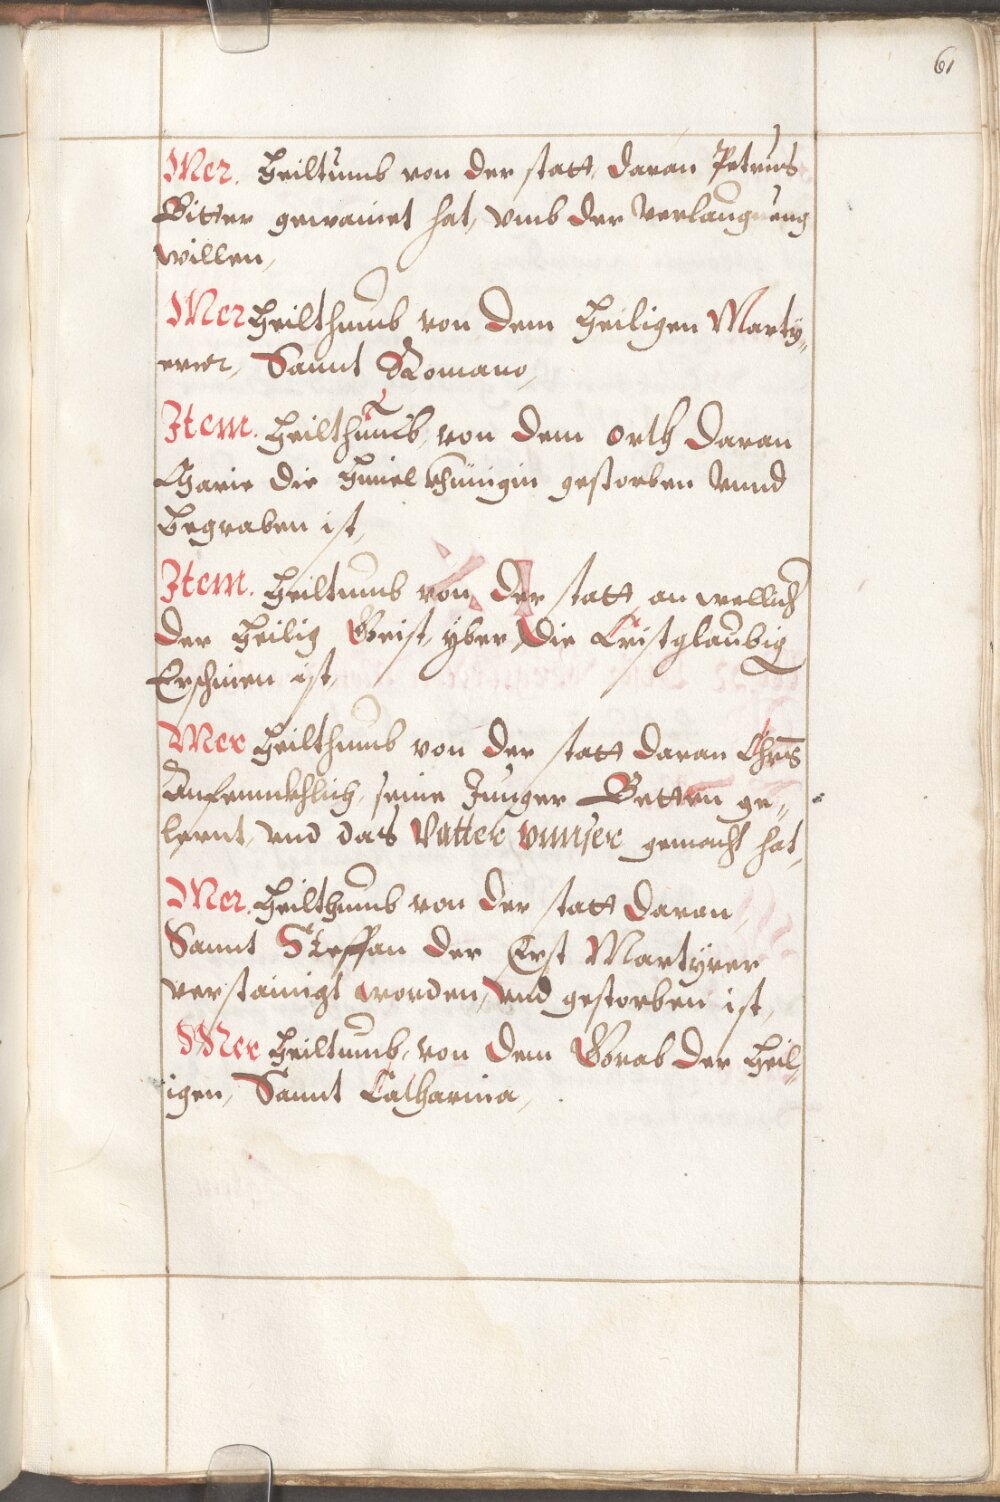 61
Mer. Heiltumb von der statt, daran Petrus
Bitter gewainet hat, vmb der verlaugnung
willen,
Mer Heilthumb von dem Heiligen Marty-,
rer, Sannt Romano,
Item. Heilthumb, von dem Orth daran
Maria die Himel Khünigin gestorben vnnd
Begraben ist,
Item. Heiltumb von der statt an wellich
der Heilig Geist, yber die Cristglaubig
Erschinen ist,
Mer Heilthumb von der statt daran Chrs
Anfennkhlich, seine Junger Betten ge-,
lernt, vnd das Vatter vnnser gemacht hat,
Mer. Heilthumb von der statt daran,
Sannt Steffan der Erst Martyrer
verstainigt worden, vnd gestorben ist,
Mer Heiltumb, von dem Grab der Heil-,
igen, Sannt Catharina,